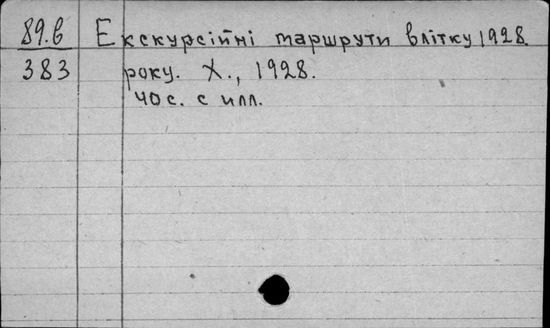 89.в Екскурсійні маршрути влітку 1928
383 року. Х., 1928.
40 с. с илл.